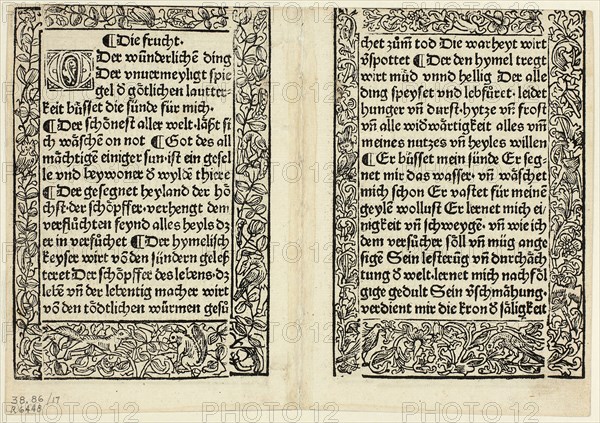 ¶ Die frucht.
O Der wünderlichē ding
Der vnuermeyligt spie
gel d̄ götlichen lautter-
keit bu̇sset die sünde für mich.
¶ Der schönest aller welt. läßt si
ch wäschē on not ¶ Got des all
mächtigē einiger sun. ist ein gesel
le vnd beywoner d̄ wyldē thiere
¶ Der gesegnet heyland der hö
chst. der schöpffer. verhengt dem
verflůchten feynd alles heyls dz
er in versůchet ¶ Der hymelisch
keyser wirt vō den sündern geleß
teret Der schöpffer des lebens. dz
lebē vn̄ der lebentig macher wirt
vō den tödtlichen würmen gesů
chet zům̄ tod Die warheyt wirt
v̄spottet ¶ Der den hymel tregt
wirt můd vnnd hellig Der alle
ding speyset vnd lebfüret. leidet
hunger vn̄ durst. hytze vn̄ frost
vn̄ alle widwärtigkeit alles vm̄
meines nutzes vn̄ heyles willen
¶ Er büsset mein sünde Er seg-
net mir das wasser. vn̄ wäschet
mich schon Er vastet für meinē
geylē wollust Er lernet mich ei-
nigkeit vn̄ schweygē. vn̄ wie ich
dem versůcher söll vn̄ müg ange
sigē Sein lesterūg vn̄ durchäch
tung d̄ welt. lernet mich nachföl
gige gedult Sein v̄schmähung.
verdient mir die kron d̄ säligkeit
38.86/17
R6448
PHOTO 12